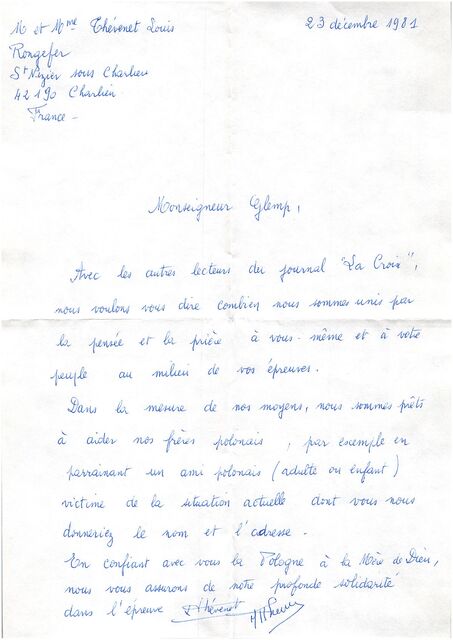 M et Mme Thévenet Louis
23 décembre 1981
Rongefer
St Nizier sous Charlieu
42190 Charlieu
France -
Monseigneur Glemp,
Avec les autres lecteurs du journal "La Croix",
nous voulons vous dire combien nous sommes unis par
la pensée et la prière à vous-même et à votre
peuple au milieu de vos épreuves.
Dans la mesure de nos moyens, nous sommes prêts
à aider nos frères polonais, par exemple en
parrainant un ami polonais (adulte ou enfant)
victime de la situation actuelle dont vous nous
donneriez le nom et l'adresse.
En confiant avec vous la Pologne à la Mère de Dieu,
nous vous assurons de notre profonde solidarité
dans l'épreuve Thévenet